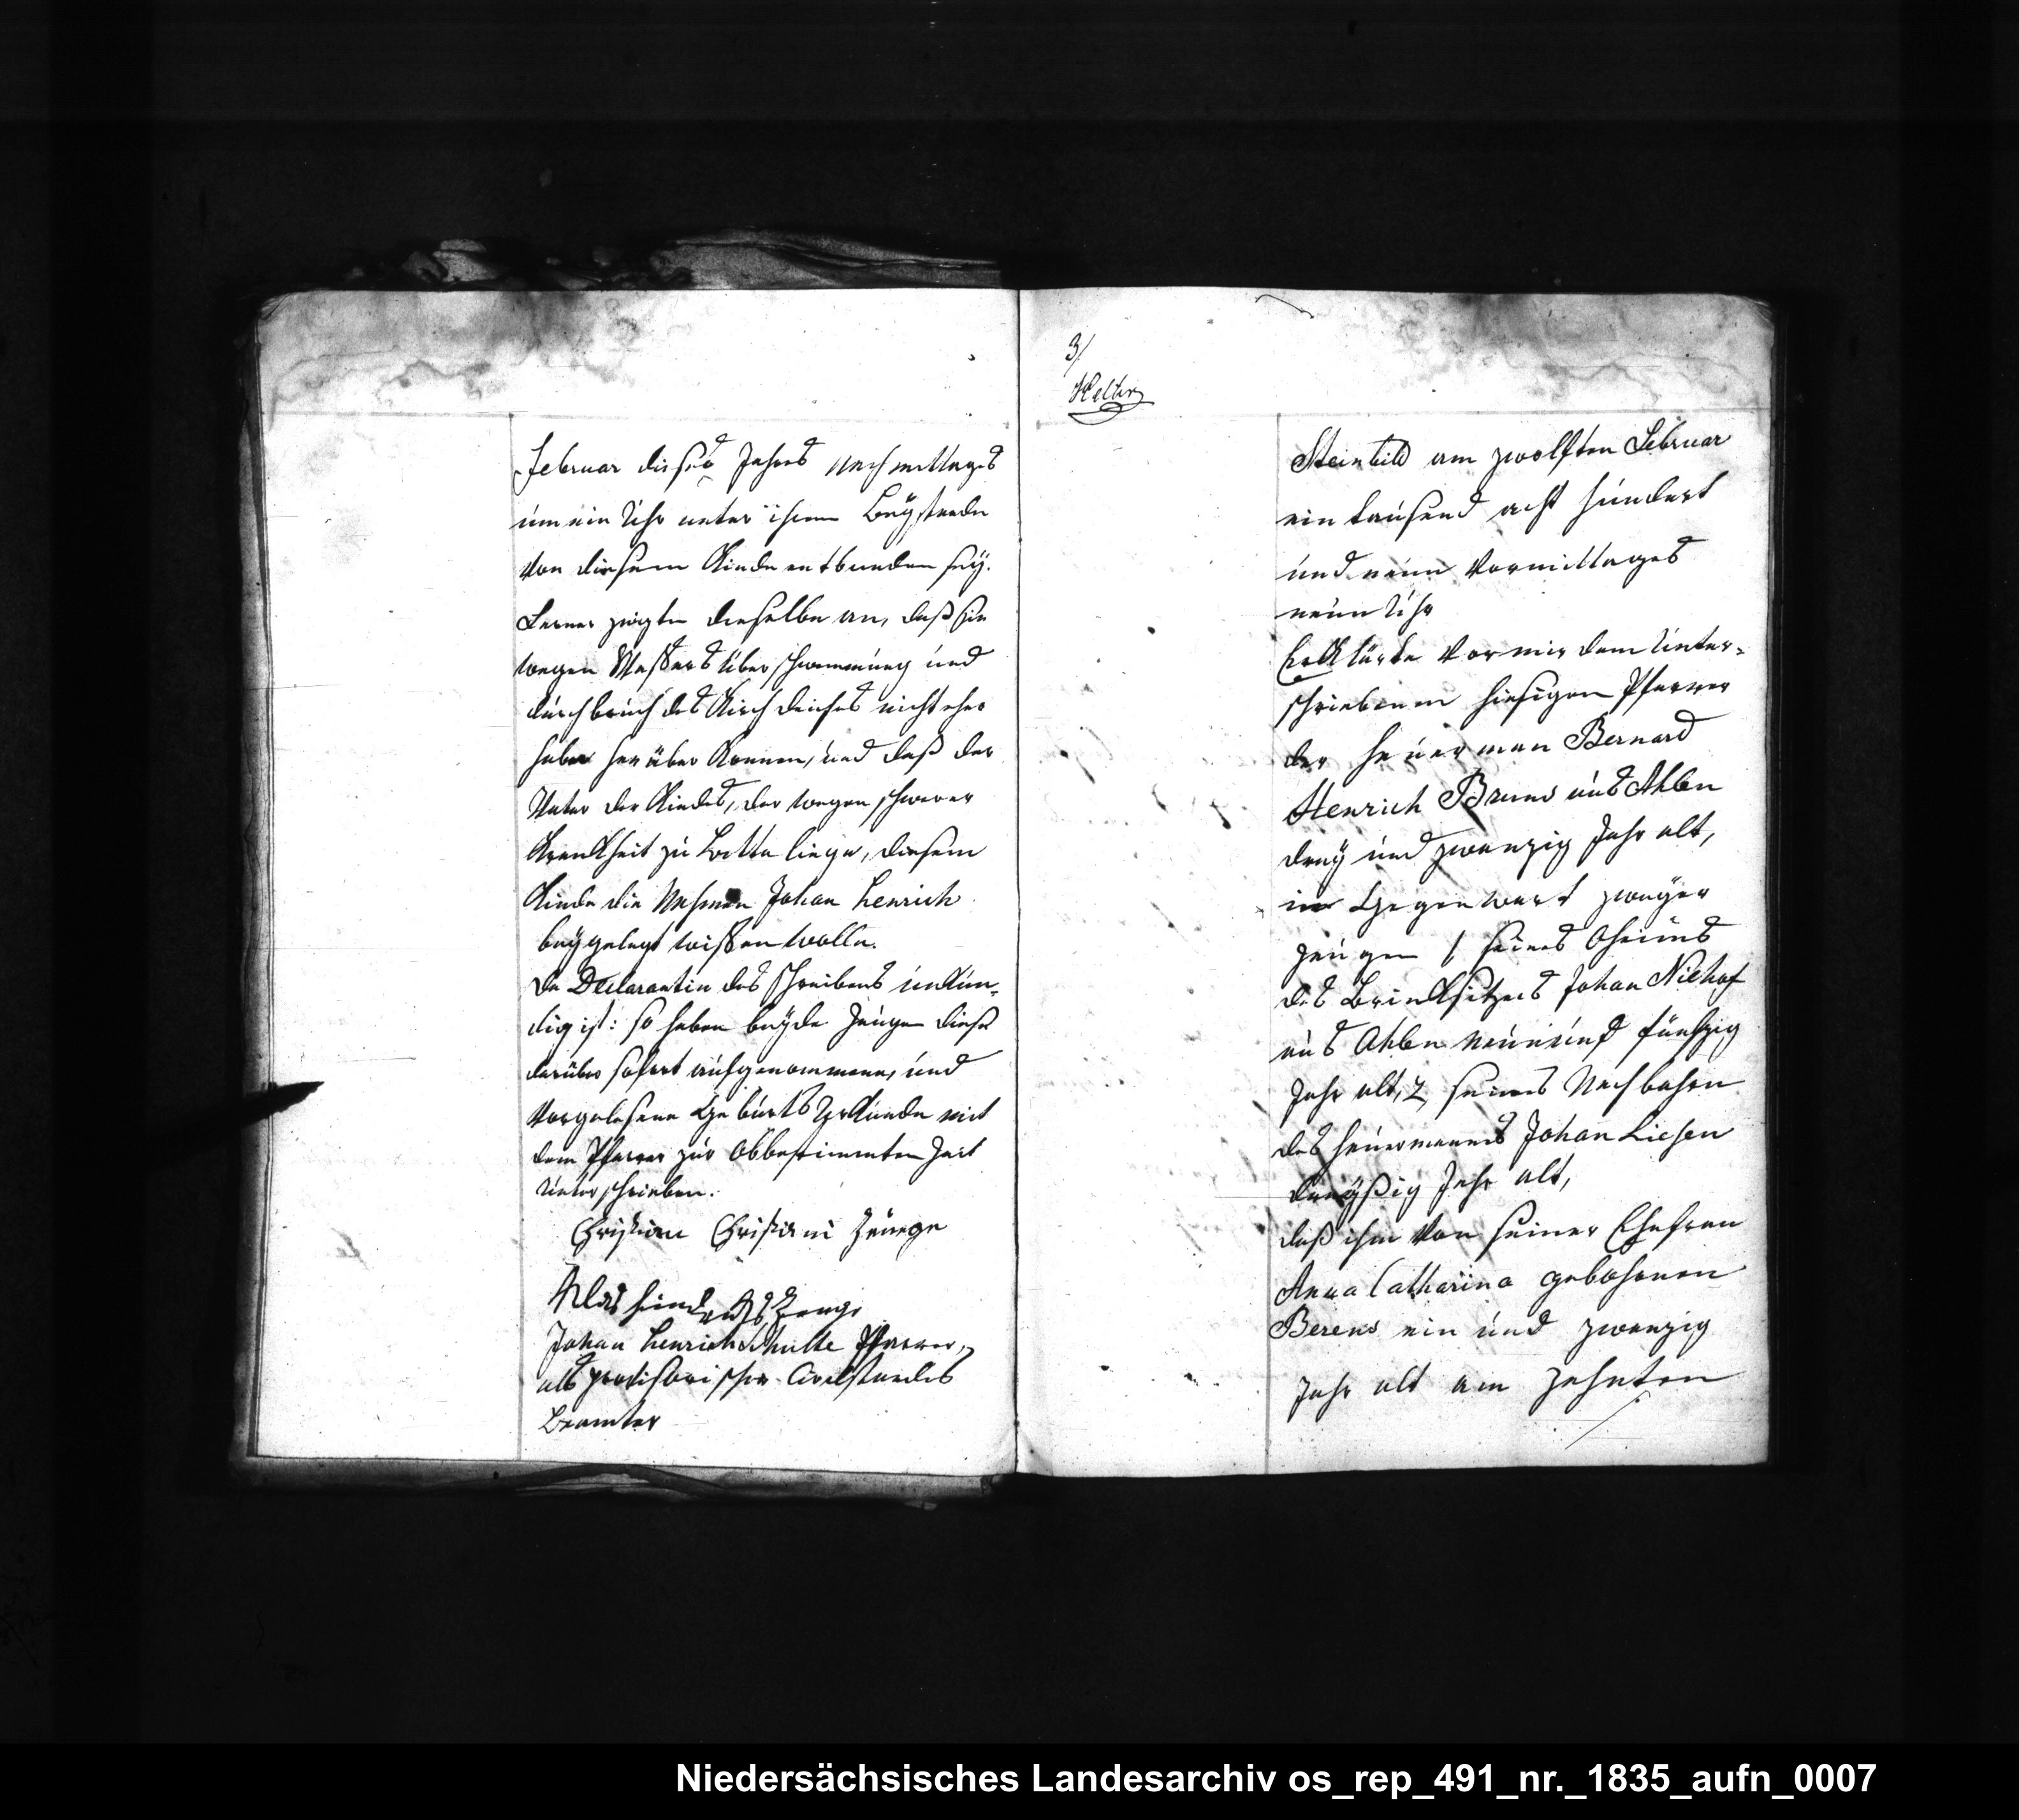 Februar dieses Jahres nachmittages
um ein Uhr unter ihrem Beystande
von diesem Kinde entbunden sey.
Ferner zeigte dieselbe an, daß sie
wegen Waßers Überschwemmung und
durchbruch des Kirchdeiches nicht eher
habe herüber können, und daß der
Vater des Kindes, der wegen schwerer
Krankheit zu Bette liege, diesem
Kinde die Nahmen Johan Henrich
beygelegt wißen wolle.
Da Declarantin des schreibens unkün-
dig ist: so haben beyde Zeugen diese
darüber sofort aufgenommene, und
vorgelesene Geburts Urkunde mit
dem Pfarrer zur obbestimmten Zeit
unterschrieben.
Christian Christiani Zeuge
als Zeuge
Johan Henrich Schulte Pfarrer,
als provisorischer Civilstandes
Beamter
3/
Steinbild am zwolften Februar
ein tausend acht hundert
und neun Vormittages
neun Uhr
Erklärte vor mir dem Unter-
schriebenen hiesigen Pfarrer
der Heuerman Bernard
Henrich Bruns aus Ahlen
drey und zwanzig Jahr alt,
in Gegenwart zweyer
Zeugen 1 seines Oheims
des Brinksitzers Johan Niehof
aus Ahlen neun und fünfzig
Jahr alt, 2 seines Nachbahrn
des Heuermanns Johan Liesen
dreyßig Jahr alt,
daß ihm von seiner Ehefrau
Anna Catharina gebohrenen
Berens ein und zwanzig
Jahr alt am zehnten
Niedersächsisches Landesarchiv os_rep_491_nr._1835_aufn_0007